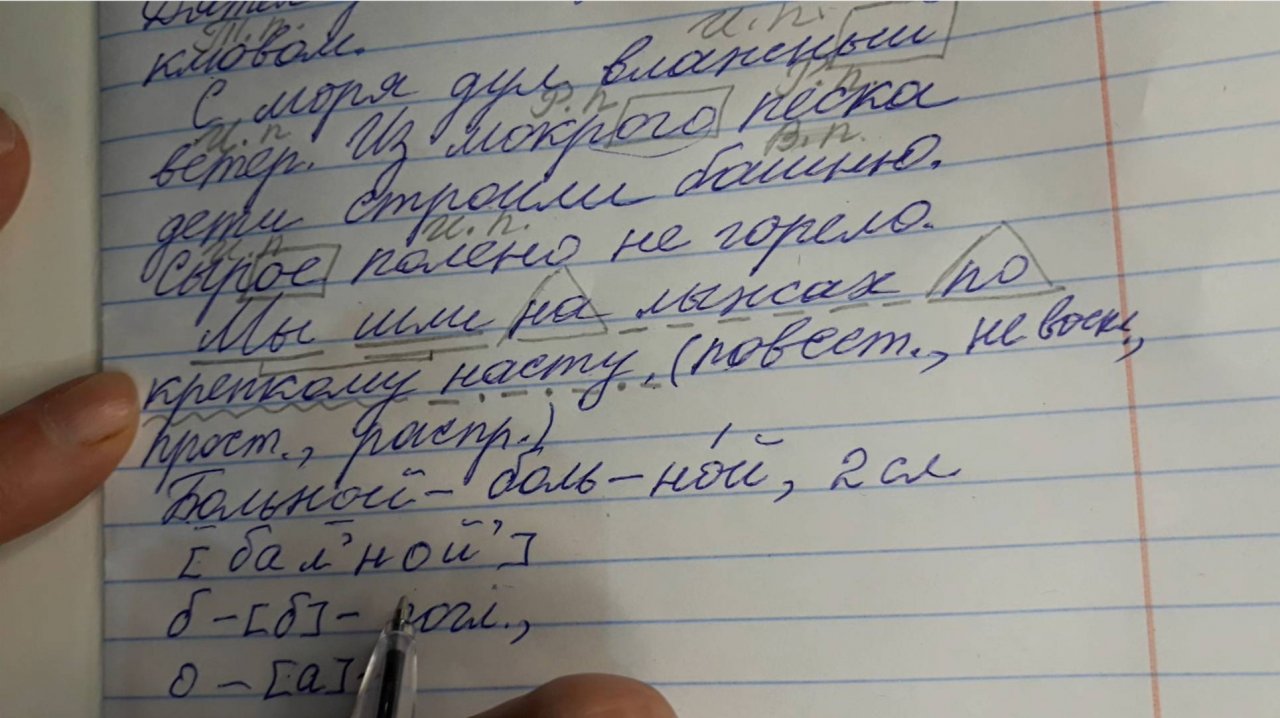 клювом.
Т. п.
И. п.
С моря дул влажный
И. п. Р. п. Р. п.
ветер. Из мокрого песка
В. п.
дети строили башню.
И. п. И. п.
Сырое полено не горело.
Мы шли на лыжах по
крепкому насту. (повест., не воскл.,
прост., распр.)
Больной – боль – ной, 2 сл
[бал'ной']
б – [б] – согл.,
о – [а]